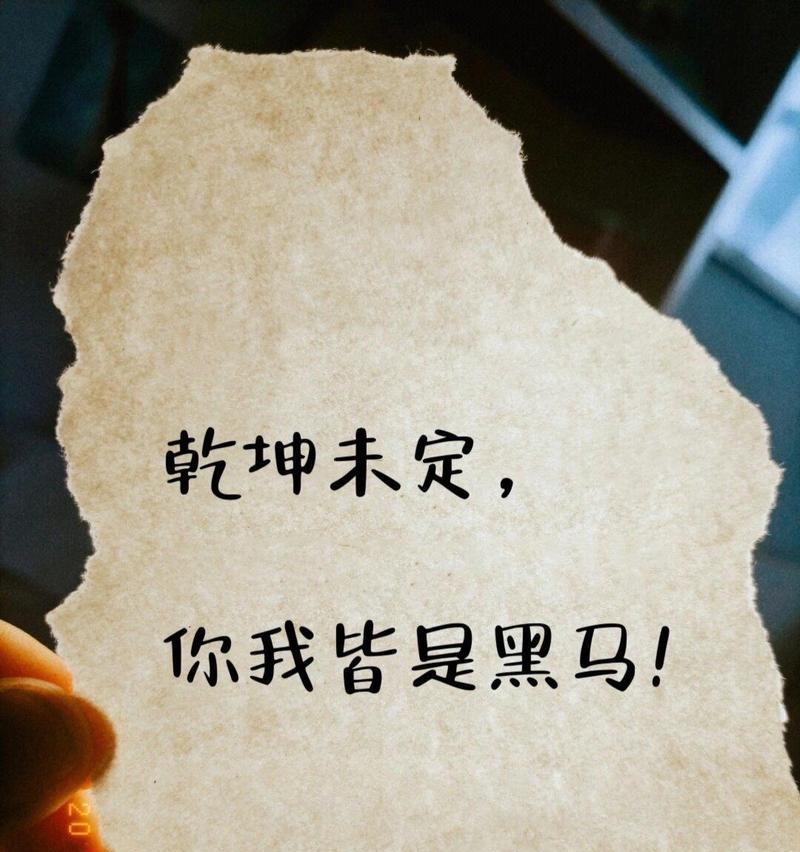 乾坤未定，
你我皆是黑马！
20